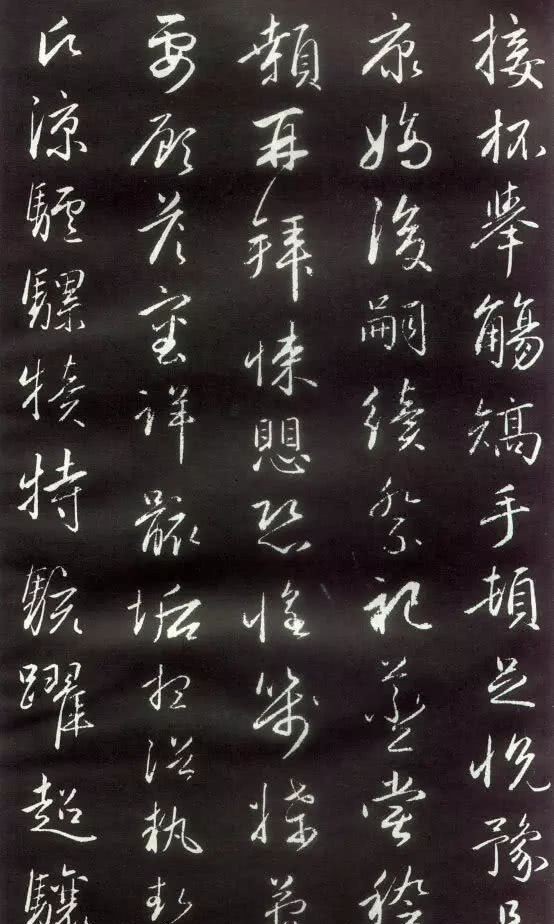 接杯舉觴矯手頓足悅豫且
康嫡後嗣續祭祀蒸嘗稽
顙再拜悚愳恐惶箋牒簡
要顧答審詳骸垢想浴執熱
願涼驢騾犢特駭躍超驤